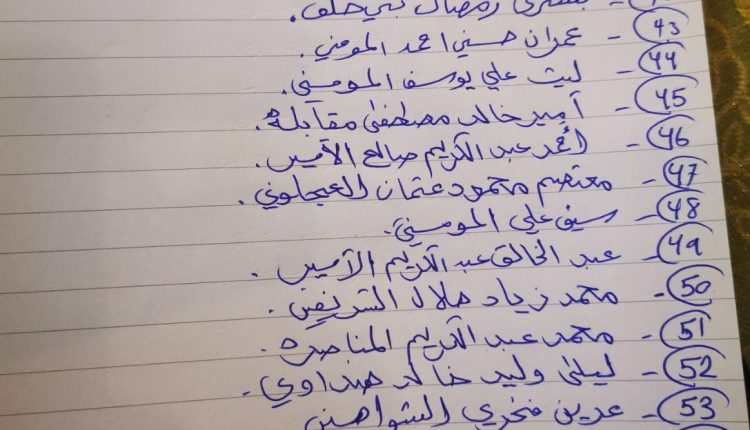 رمضان بني خلف.
43 - عمران حسني احمد المومني.
44 - ليث علي يوسف المومني.
45 - أمير خالد مصطفى مقابلة.
46 - أحمد عبد الكريم صالح الأميس.
47 - معتصم محمود عثمان العجلوني.
48 - سيف علي المومني.
49 - عبد الخالق عبد الكريم الأميس.
50 - محمد زياد هلال الشريفين.
51 - محمد عبد الكريم المناصرة.
52 - ليلى وليد خالد هنداوي.
53 - عرين فخري الشواهين